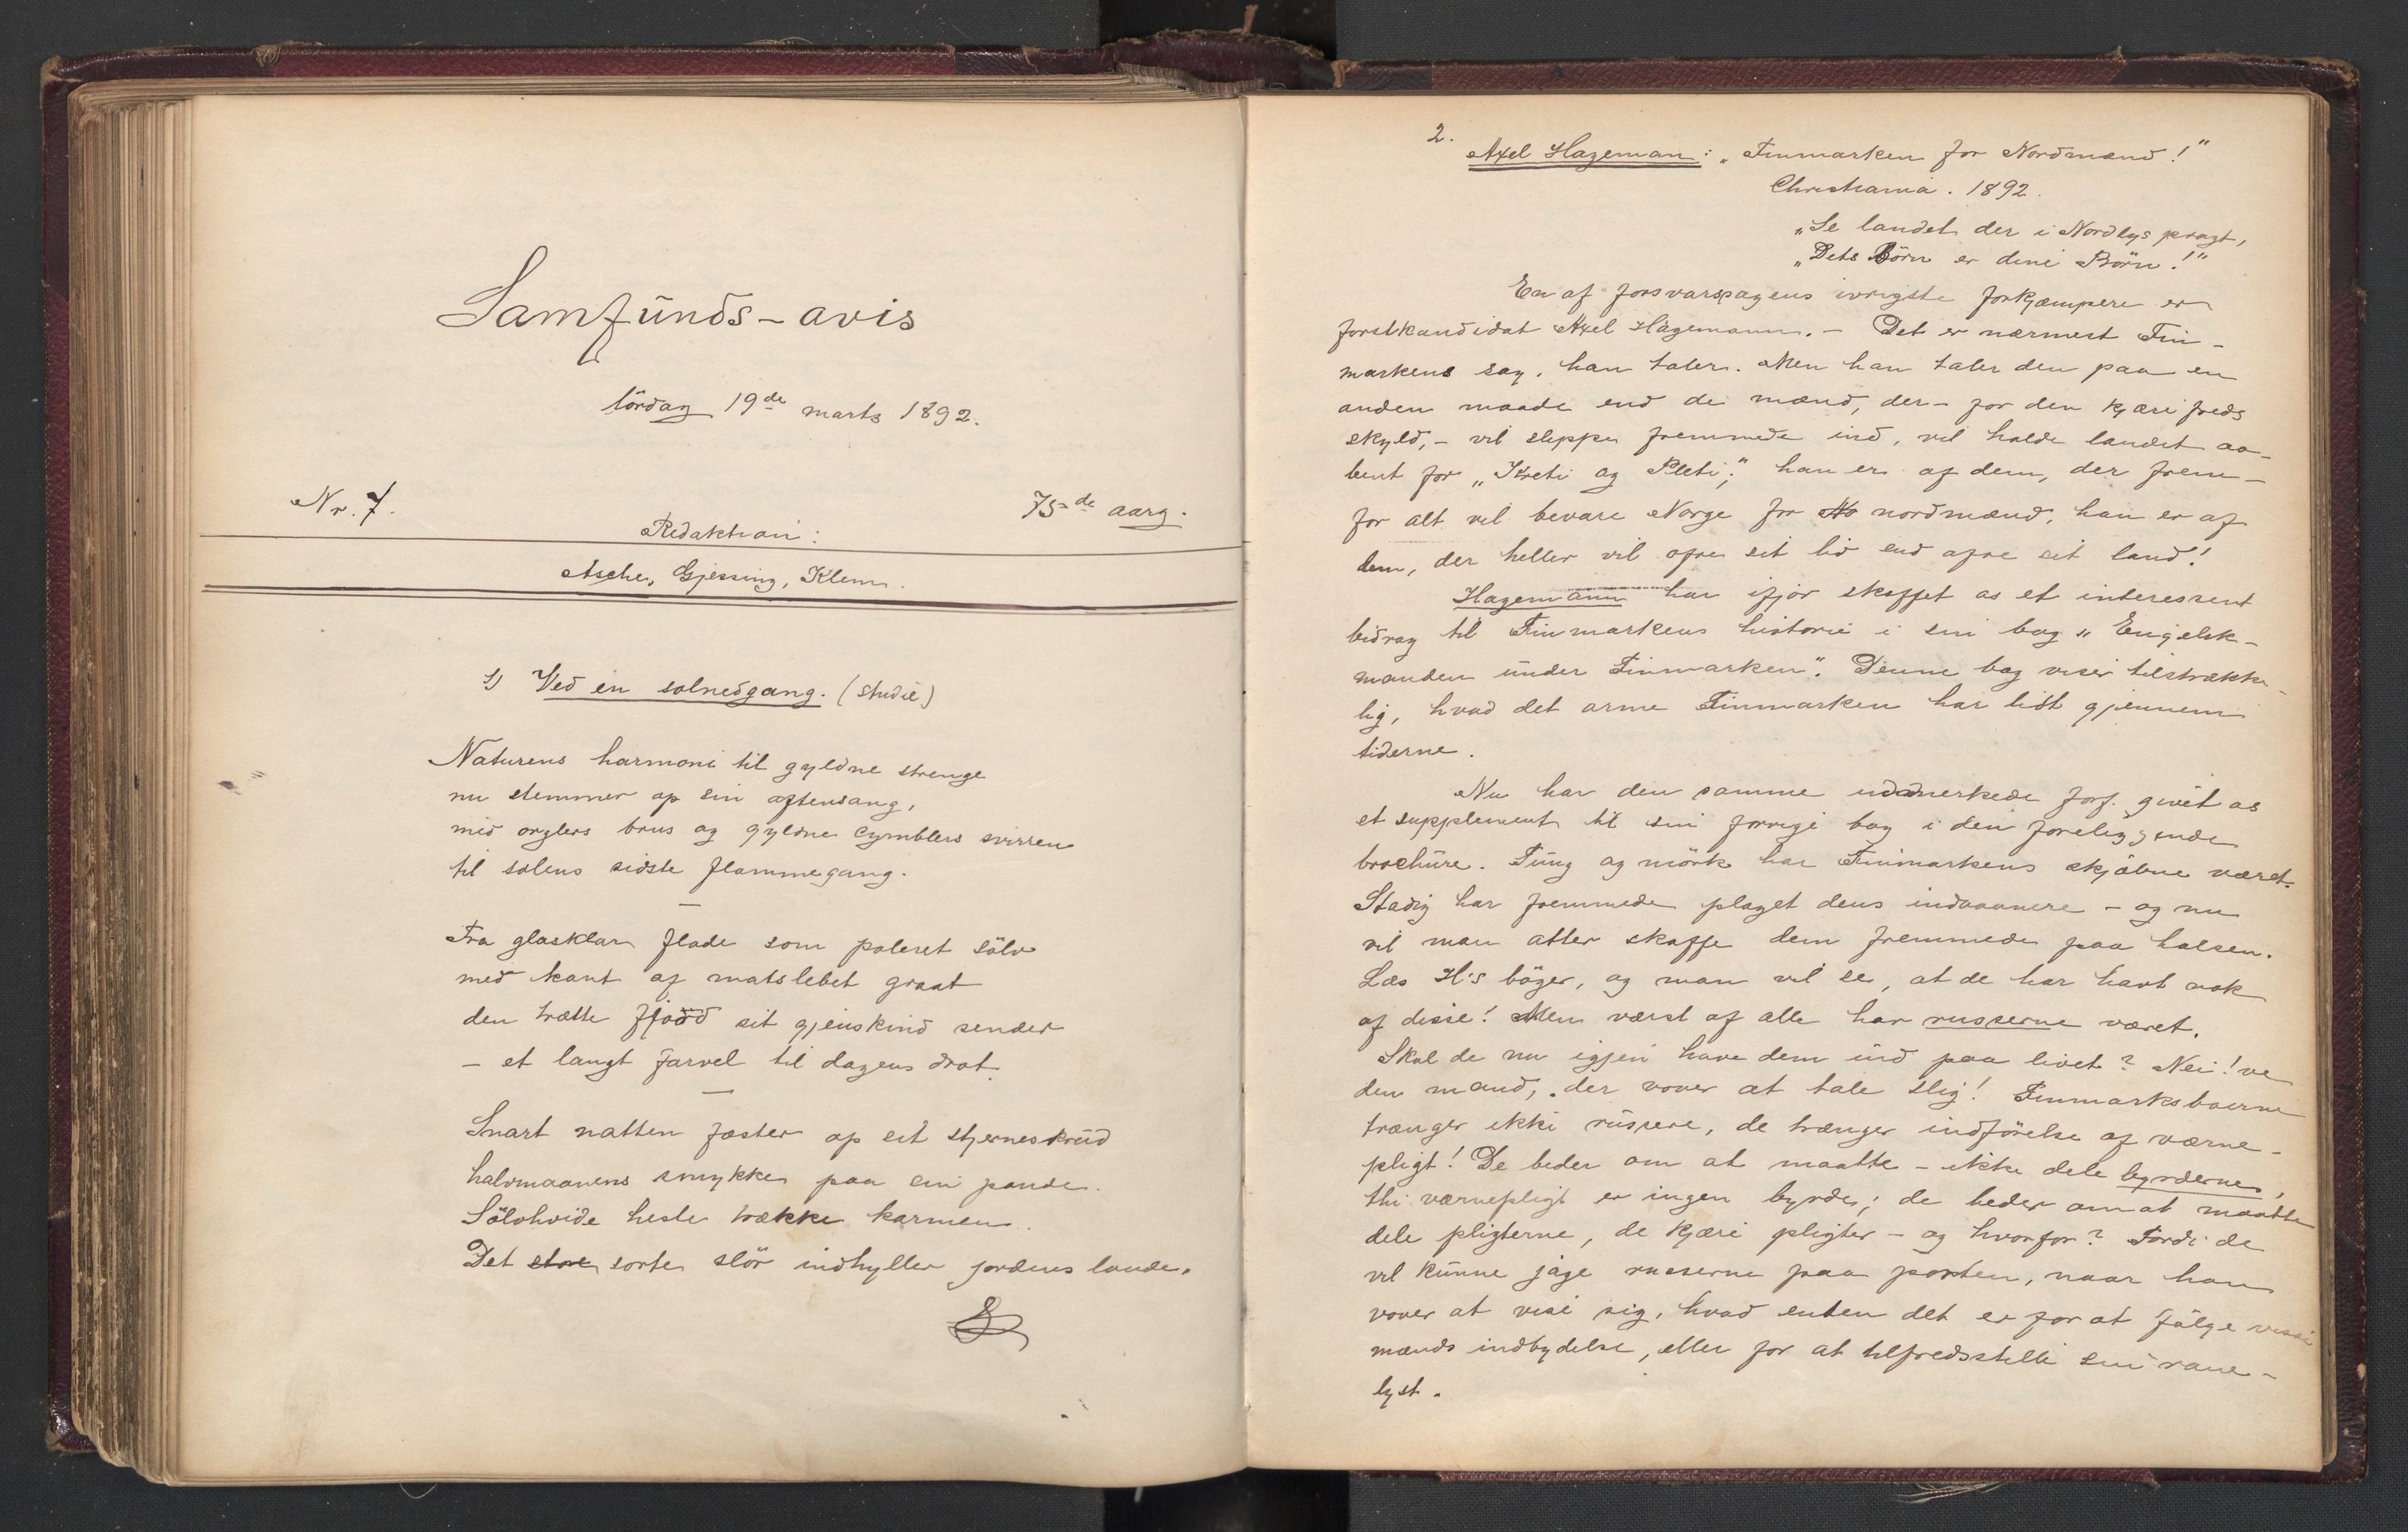 Samfunds-avis
lördag 19de marts 1892.
Nr. 7.
75de aarg.
Redaktion:
Asche, Gjessing, Klem.
1) Ved en solnedgang. (studie)
Naturens harmoni til gyldne strenge
nu stemmer op sin aftensang,
med orglers brus og gyldne cymblers svirren
til solens sidste flammegang.
—
Fra glasklar flade som poleret sölv
med kant af matslebet graat
den trætte fjord sit gjenskind sender
– et langt farvel til dagens drot.
—
Snart natten fæster op sit stjerneskrud
halvmaanens smykke paa sin pande.
Sölvhvide heste trække karmen.
Det store sorte slör indhyller jordens lande.
2.
Axel Hageman: „Finmarken for Nordmænd!"
Christiania. 1892.
„Se landet der i Nordlys pragt,
„Dets Börn er dine Börn!"
En af forsvarssagens ivrigste forkjæmpere er
forstkandidat Axel Hagemann. – Det er nærmest Fin-
markens sag, han taler. Men han taler den paa en
anden maade end de mænd, der – for den kjære freds
skyld, – vil slippe fremmede ind, vil holde landet aa-
bent for „Kreti og Pleti;" han er af dem, der frem-
for alt vil bevare Norge for No nordmænd, han er af
dem, der heller vil ofre sit liv end ofre sit land!
Hagemann har ifjor skaffet os et interessent
bidrag til Finmarkens historie i sin bog „Engelsk-
manden under Finmarken". Denne bog viser tilstrække-
lig, hvad det arme Finmarken har lidt gjennem
tiderne.
Nu har den samme udmerkede forf. givet os
et supplement til sin forrige bog i den foreliggende
brochure. Tung og mörk har Finmarkens skjæbne været.
Stadig har fremmede plaget dens indvaanere – og nu
vil man atter skaffe dem fremmede paa halsen.
Læs H's böger, og man vil se, at de har havt nok
af disse! Men værst af alle har russerne været.
Skal de nu igjen have dem ind paa livet? Nei! ve
den mand, der vover at tale slig! Finmarksboerne
trænger ikke russere, de trænger indförelse af værne-
pligt! De beder om at maatte – ikke dele byrderne,
thi værnepligt er ingen byrde; de beder om at maatte
dele pligterne, de kjære pligter – og hvorfor? Fordi de
vil kunne jage russerne paa porten, naar han
vover at vise sig, hvad enten det er for at fölge visse
mænds indbydelse, eller for at tilfredsstille sin rane-
lyst.